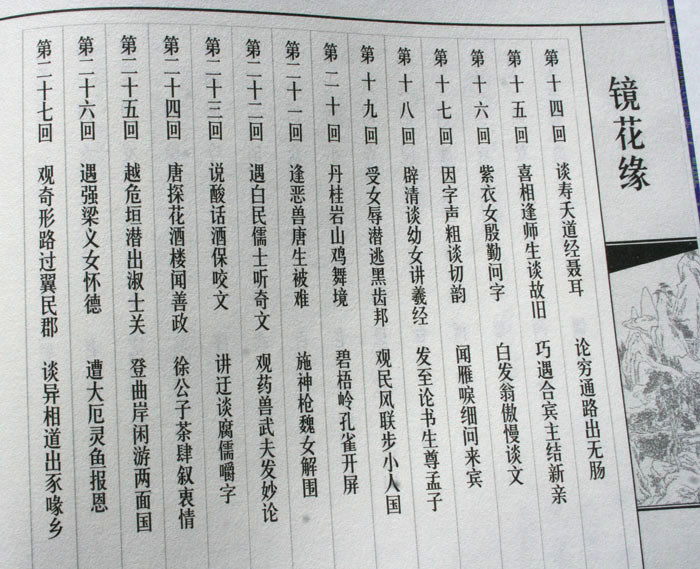 镜花缘
第十四回 谈寿夭道经聂耳 论穷通路出无肠
第十五回 喜相逢师生谈故旧 巧遇合宾主结新亲
第十六回 紫衣女殷勤问字 白发翁傲慢谈文
第十七回 因字声粗谈切韵 闻雁唳细问来宾
第十八回 辟清谈幼女讲羲经 发至论书生尊孟子
第十九回 受女辱潜逃黑齿邦 观民风联步小人国
第二十回 丹桂岩山鸡舞境 碧梧岭孔雀开屏
第二十一回 逢恶兽唐生被难 施神枪魏女解围
第二十二回 遇白民儒士听奇文 观药兽武夫发妙论
第二十三回 说酸话酒保咬文 讲迂谈腐儒嚼字
第二十四回 唐探花酒楼闻善政 徐公子茶肆叙衷情
第二十五回 越危垣潜出淑士关 登曲岸闲游两面国
第二十六回 遇强梁义女怀德 遭大厄灵鱼报恩
第二十七回 观奇形路过翼民郡 谈异相道出豕喙乡